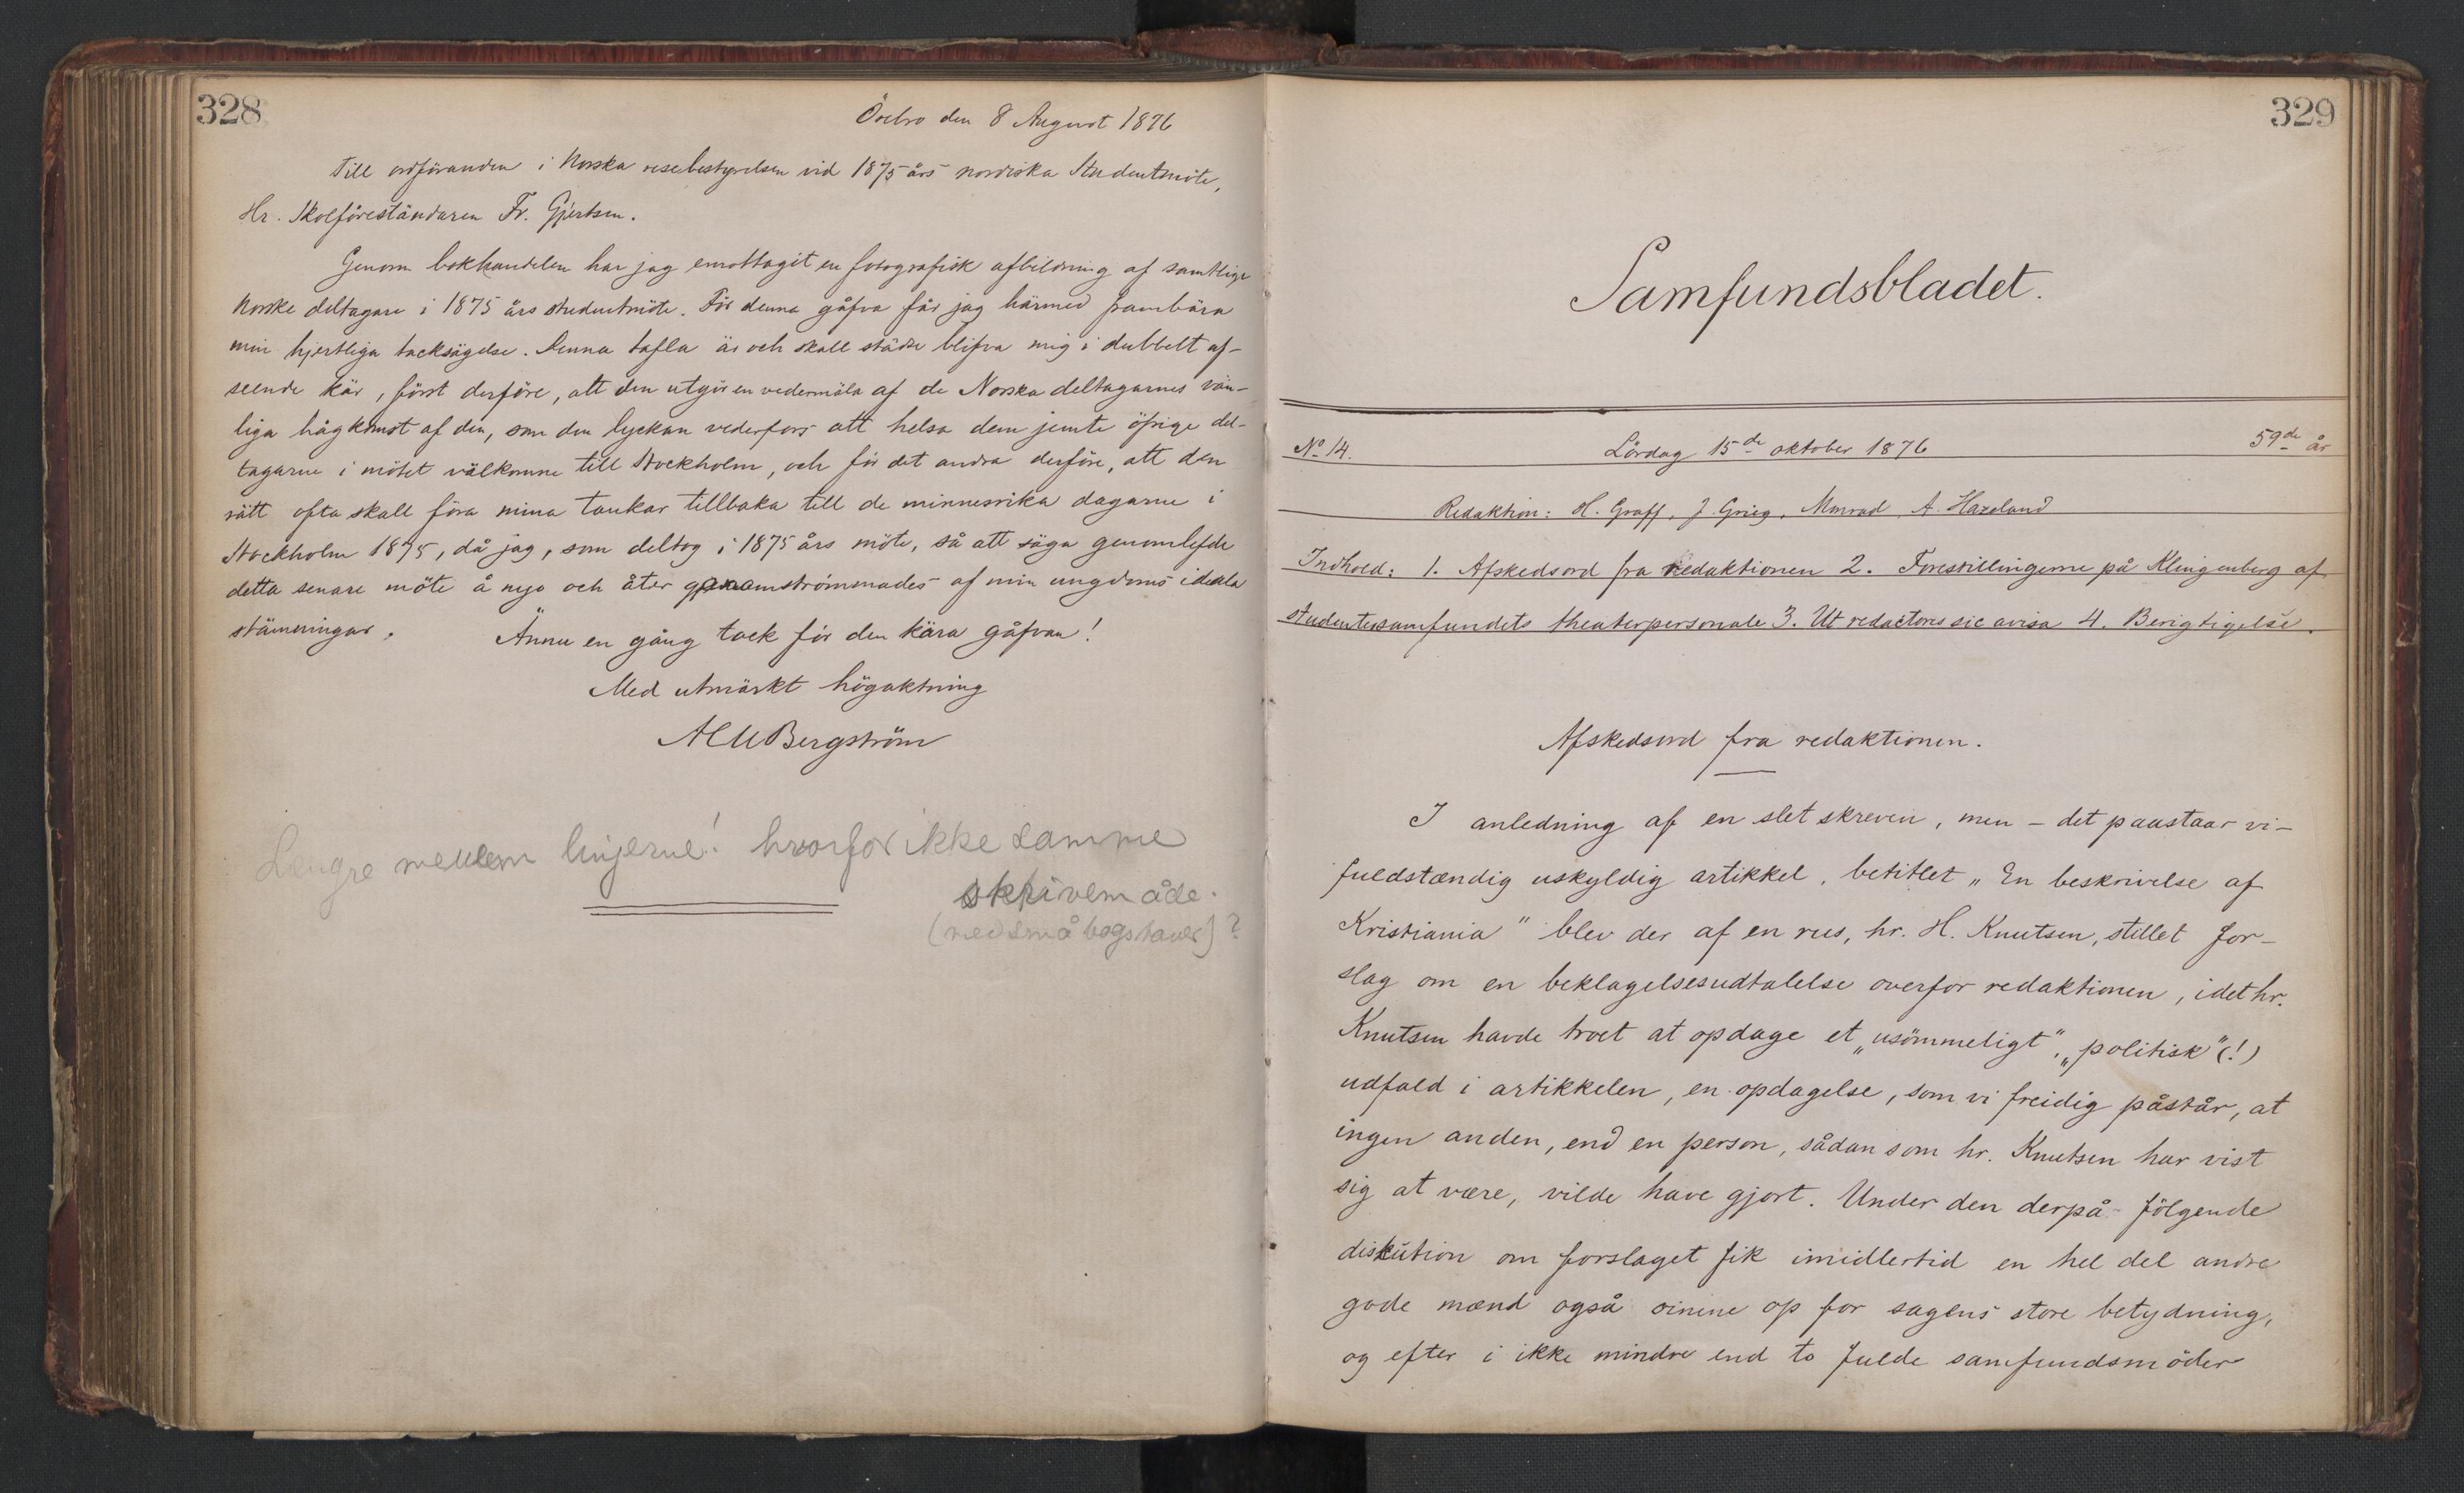 328
Örebro den 8 August 1876
Till ordföranden i Norska resebestyrelsen vid 1875 års nordiska Studentmöte,
Hr. Skolföreståndaren Fr. Gjertsen.
Genom bokhandelen har jag emottagit en fotografisk afbildning af samtlige
Norske deltagare i 1875 års studentmöte. För denna gåfva får jag härmed frambära
min hjertliga tacksägelse. Denna tafla är och skall städse blifva mig i dubbelt af-
seende kär, först derföre, att den utgör en vedermäla af de Norska deltagarnes vän-
liga hågkomst af den, som den lyckan vederfors att helsa dem jemte öfrige del-
tagarne i mötet välkomne till Stockholm, och för det andra derföre, att den
rätt ofta skall föra mina tankar tillbaka till de minnesrika dagarne i
Stockholm 1875, då jag, som deltog i 1875 års möte, så att säga genomlefde
detta senare möte å nyo och åter genomströmmades af min ungdoms ideala
stämningar.
Ännu en gång tack för den kära gåfvan!
Med utmärkt högaktning
Bergström
Længre mellem linjerne! hvorfor ikke samme
skrivemåde.
(med små bogstaver)?
329
Samfundsbladet.
No 14.
Lördag 15de oktober 1876
59de år
Redaktion: H. Graff, J. Grieg, Monrad, A. Hazeland
Indhold: 1. Afskedsord fra redaktionen 2. Forestillingerne på Klingenberg af
studentersamfundets theaterpersonale 3. Ut redactores sic avisa 4. Berigtigelse.
Afskedsord fra redaktionen.
I anledning af en slet skreven, men – det paastaar vi –
fuldstændig uskyldig artikkel, betitlet „En beskrivelse af
Kristiania" blev der af en rus, hr. H. Knutsen, stillet for-
slag om en beklagelsesudtalelse overfor redaktionen, idet hr.
Knutsen havde troet at opdage et „usömmeligt", „politisk" (!)
udfald i artikkelen, en opdagelse, som vi freidig påstår, at
ingen anden, end en person, sådan som hr. Knutsen har vist
sig at være, vilde have gjort. Under den derpå fölgende
diskution om forslaget fik imidlertid en hel del andre
gode mænd også öinene op for sagens store betydning,
og efter i ikke mindre end to fulde samfundsmöder